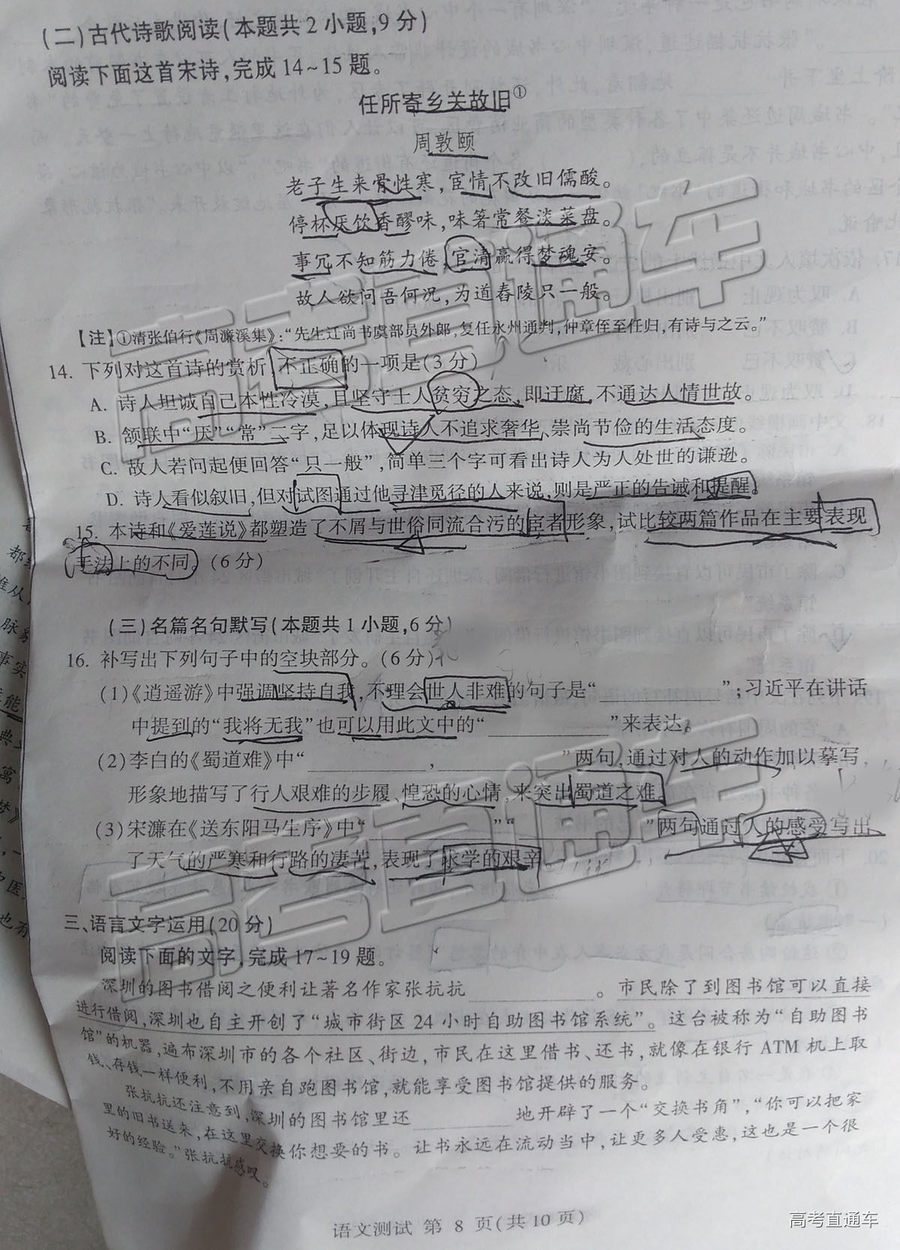 (二)古代诗歌阅读(本题共2小题,9分)
阅读下面这首宋诗,完成14~15题。
任所寄乡关故旧①
周敦颐
老子生来骨性寒,宦情不改旧儒酸。
停杯厌饮香醪味,味箸常餐淡菜盘。
事冗不知筋力倦,官清赢得梦魂安。
故人欲问吾何况,为道舂陵只一般。
【注】①清张伯行《周濂溪集》:“先生迁尚书虞部员外郎,复任永州通判,仲章侄至任归,有诗与之云。”
14. 下列对这首诗的赏析,不正确的一项是(3分)
A. 诗人坦诚自己本性冷漠,且坚守士人贫穷之态,即迂腐,不通达人情世故。
B. 颔联中“厌”“常”二字,足以体现诗人不追求奢华、崇尚节俭的生活态度。
C. 故人若问起便回答“只一般”,简单三个字可看出诗人为人处世的谦逊。
D. 诗人看似叙旧,但对试图通过他寻津觅径的人来说,则是严正的告诫和提醒。
15. 本诗和《爱莲说》都塑造了不屑与世俗同流合污的官者形象,试比较两篇作品在主要表现
手法上的不同。(6分)
(三)名篇名句默写(本题共1小题,6分)
16. 补写出下列句子中的空块部分。(6分)
(1)《逍遥游》中强调坚持自我,不理会世人非难的句子是“____________”;习近平在讲话
中提到的“我将无我”也可以用此文中的“____________”来表达。
(2)李白的《蜀道难》中“____________,____________”两句,通过对人的动作加以摹写,
形象地描写了行人艰难的步履、惶恐的心情,来突出蜀道之难。
(3)宋濂在《送东阳马生序》中“____________”“____________”两句通过人的感受写出
了天气的严寒和行路的凄苦,表现了求学的艰辛。
三、语言文字运用(20分)
阅读下面的文字,完成17~19题。
深圳的图书借阅之便利让著名作家张抗抗__________。市民除了到图书馆可以直接
进行借阅,深圳也自主开创了“城市街区24小时自助图书馆系统”。这台被称为“自助图书
馆”的机器,遍布深圳市的各个社区、街边,市民在这里借书、还书,就像在银行ATM机上取
钱、存钱一样便利,不用亲自跑图书馆,就能享受图书馆提供的服务。
张抗抗还注意到,深圳的图书馆里还__________地开辟了一个“交换书角”,“你可以把家
里的旧书送来,在这里交换你想要的书。让书永远在流动当中,让更多人受惠,这也是一个很
好的经验。”张抗抗感叹。
语文测试 第8页(共10页)
高考直通车
高考直通车
高考直通车